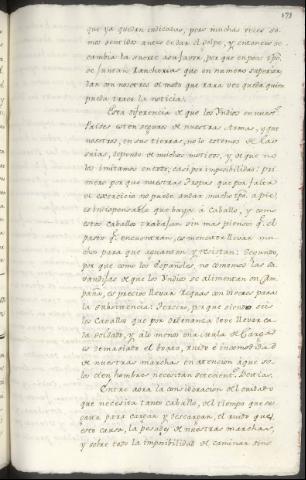 171
que ya quedan indicadas, pues muchas veces so-
mos sentidos antes de dar el golpe, y entonces se
cambia la suerte a su favor, por que en poco tpô.
se juntan Rancherias que en numero superior
dan con nosotros de modo que rara vez queda quien
pueda traer la noticia.
Esta diferencia de que los Yndios en nuestros
Países esten seguros de nuestras Armas, y que
nosotros, en sus tierras, no lo estemos de las
suias, depende de muchos motivos, y de que no
los imitamos en todo, casi por imposibilidad: pri-
mero por que nuestras Tropas que por falta
de exercicio no pueden andar mucho tpô. a pie,
es indispensable que bayan á caballo, y como
estos caballos trabajan sin mas pienso q.e el
pasto q.e encuentran, es menester llevar mu-
chos para que aguanten, y resistan: Segundo,
por que como los Españoles, no comemos las sa-
vandijas de que los Yndios se alimentan en Cam-
paña, es preciso llevar Requas con viveres para
la subsistencia: Tercero, por que siendo seis
los Caballos que por ordenanza deve llevar ca-
da soldado, y á lo menos una mula de Carga
es demasiado el bulto, ruido e incomodidad
de nuestras marchas en atencion á que so-
los cien hombres necesitan setecientas Bestias.
Entre aora la consideracion del cuidado
que necesita tanto caballo, del tiempo que se
para cargar y descargar, el ruido que
esto causa, la pesadez de nuestras marchas,
y sobre todo la imposibilidad de caminar sino